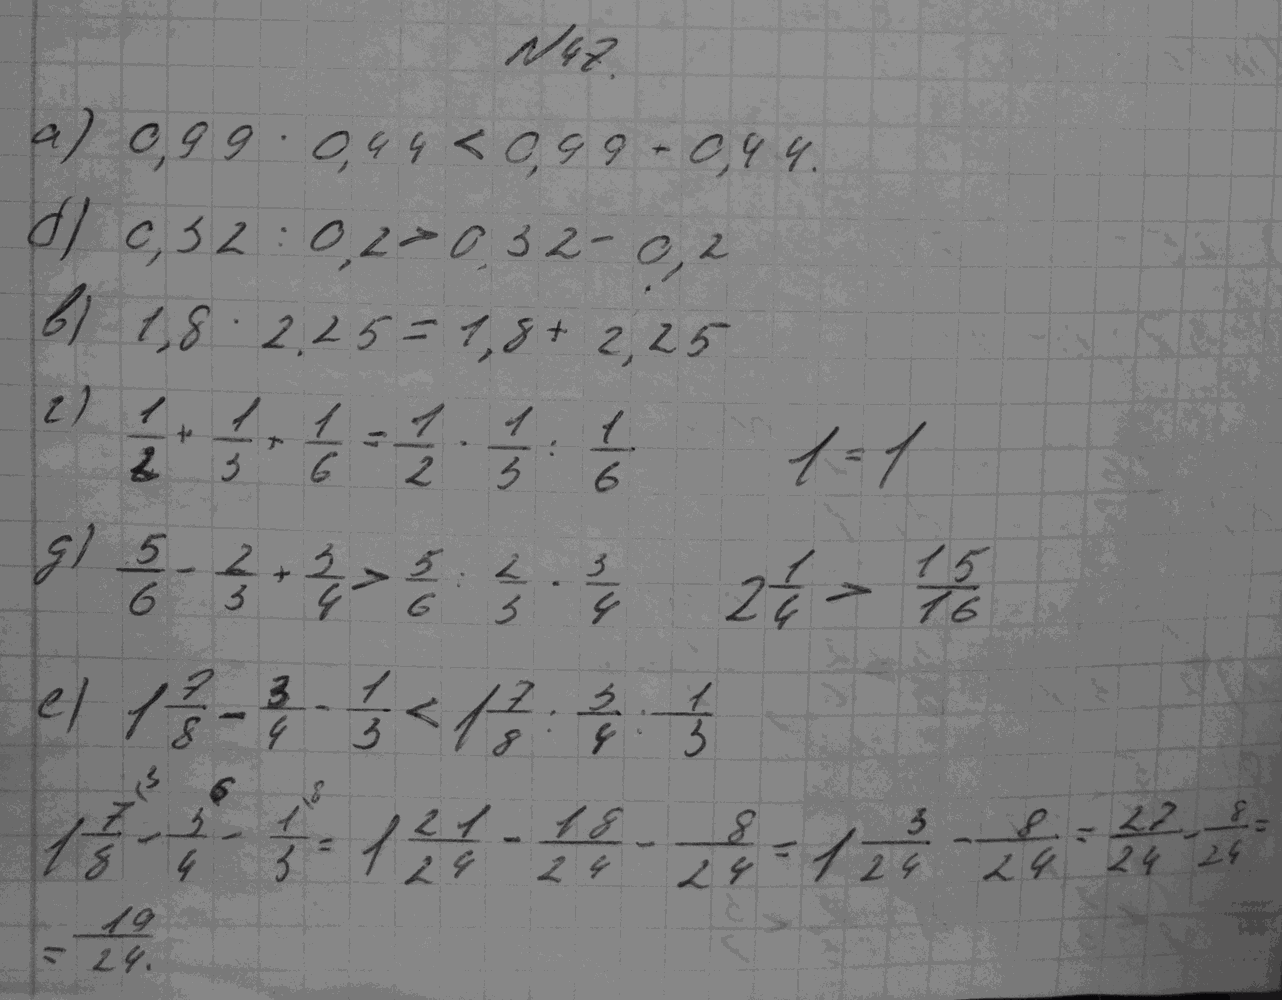 №47.
а) 0,99 · 0,44 < 0,99 + 0,44.
б) 0,32 : 0,2 > 0,32 - 0,2
в) 1,8 · 2,25 = 1,8 + 2,25
г) 1/2 + 1/3 + 1/6 = 1/2 · 1/3 : 1/6 1 = 1
д) 5/6 - 2/3 + 3/4 > 5/6 : 2/3 · 3/4 2 1/4 > 15/16
е) 1 7/8 - 3/4 - 1/3 < 1 7/8 : 3/4 : 1/3
1 7/8 (3 - 3/4 6 - 1/3 (8 = 1 21/24 - 18/24 - 8/24 = 1 3/24 - 8/24 = 27/24 - 8/24 =
= 19/24.